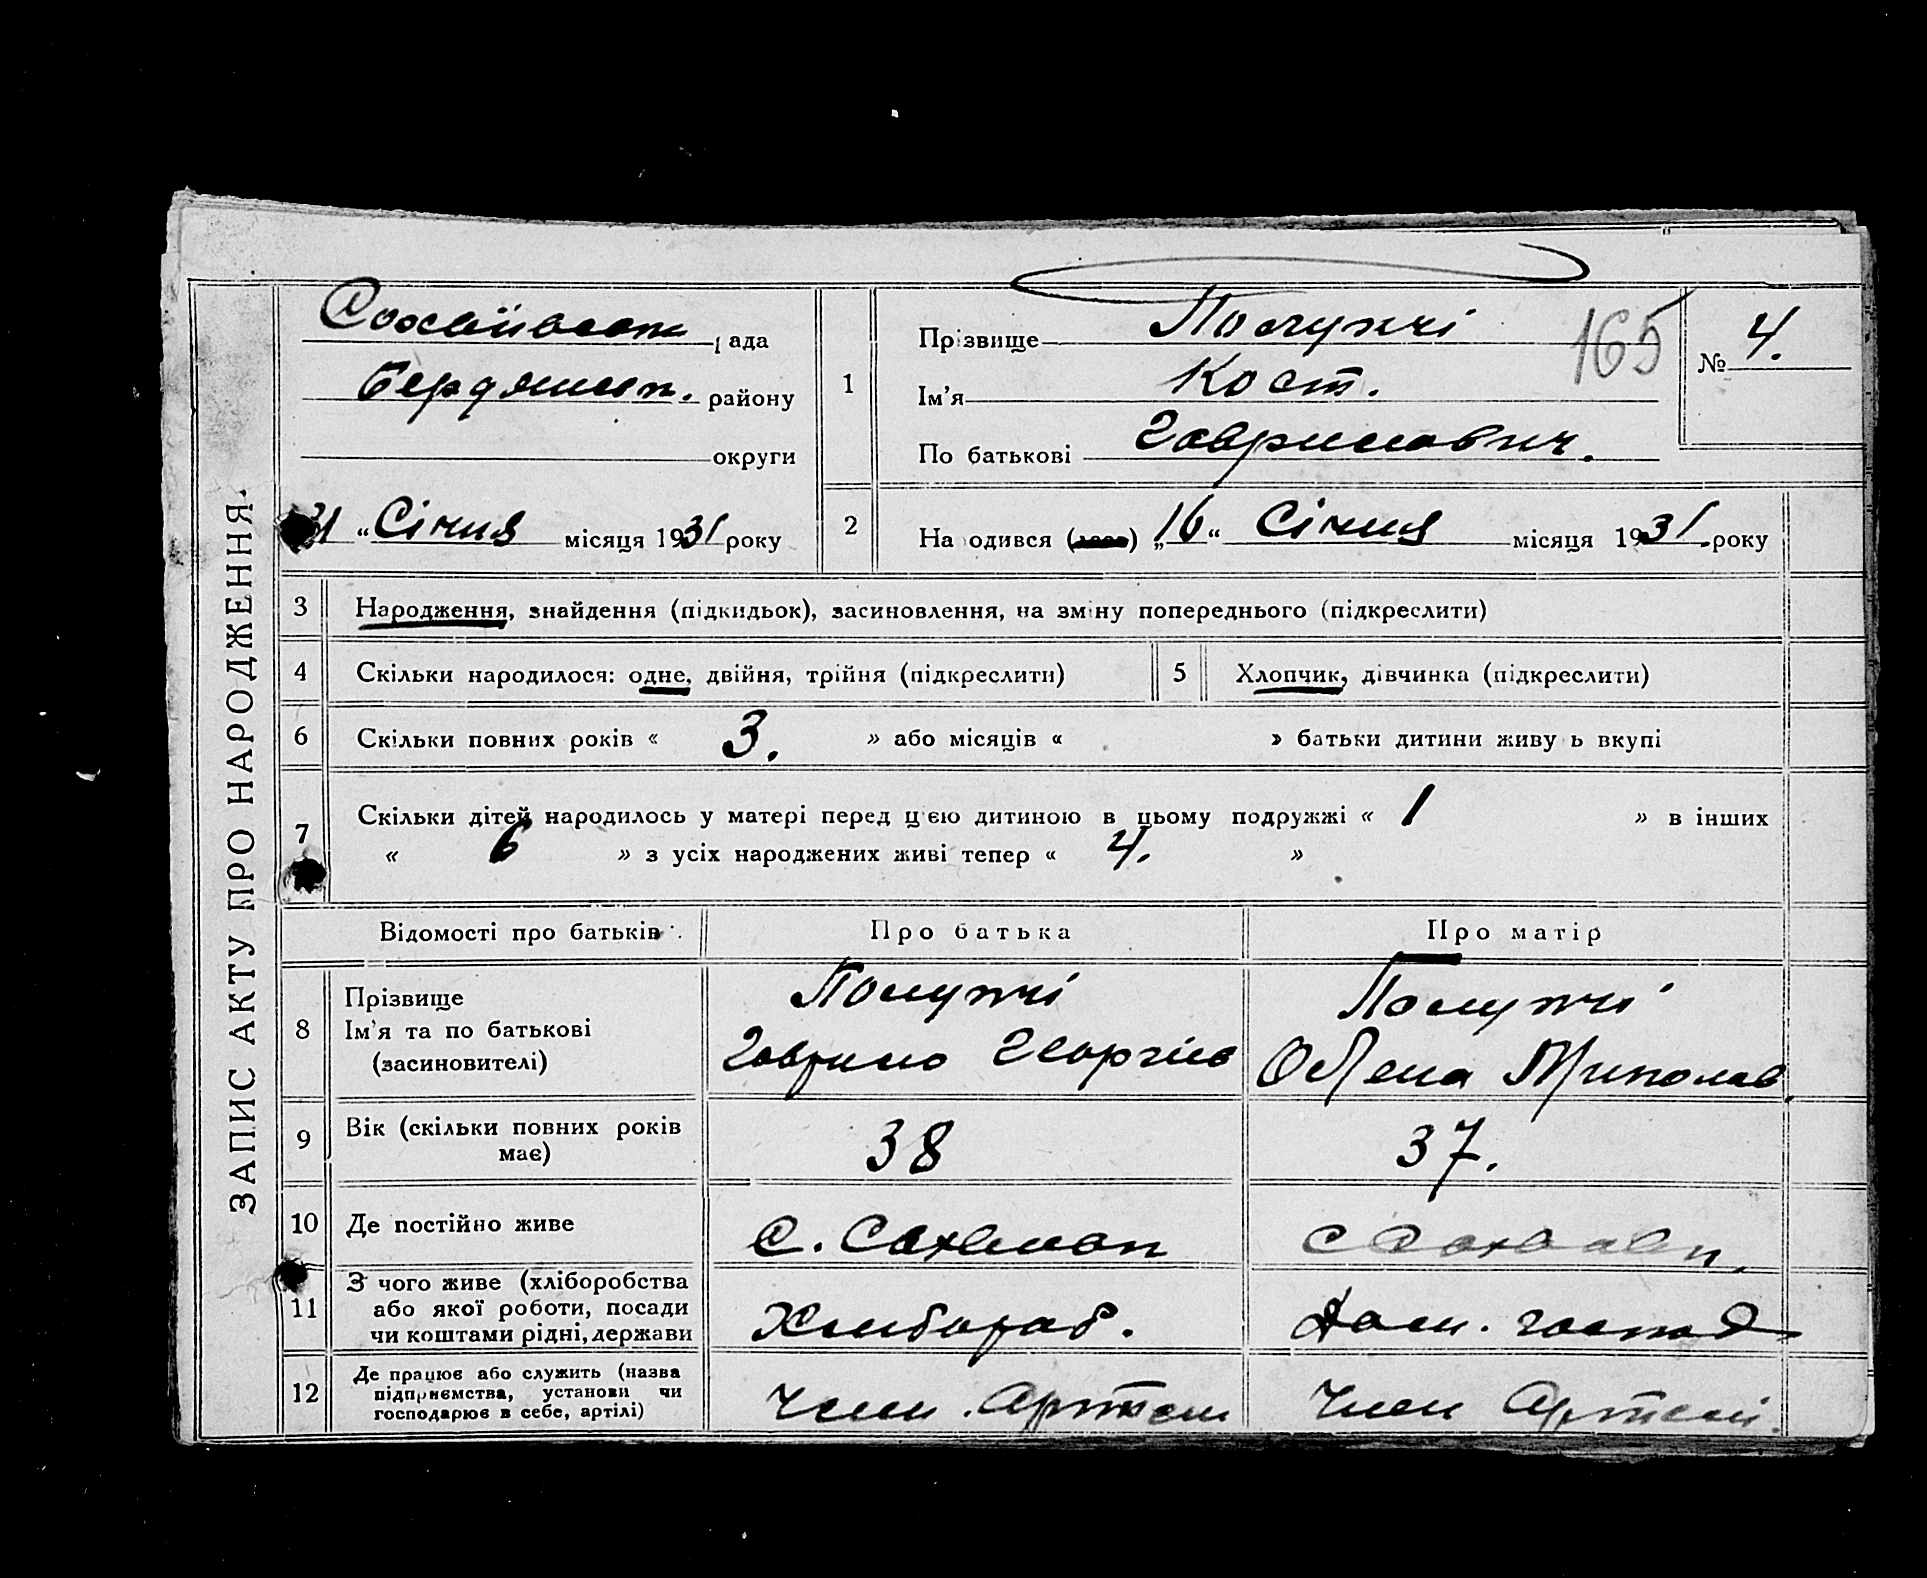 ЗАПИС АКТУ ПРО НАРОДЖЕННЯ.
рада
Бердянськ. району
округи
21 „ Січня місяця 1931 року
1
Прізвище
Ім’я Кост.
По батькові Гаврилович.
165
№ 4.
2
Народився „16“ Січня місяця 1931 року
3 Народження, знайдення (підкидьок), засиновлення, на зміну попереднього (підкреслити)
4 Скільки народилося: одне, двійня, трійня (підкреслити) 5 Хлопчик, дівчинка (підкреслити)
6 Скільки повних років « 3. » або місяців « » батьки дитини живуть вкупі
7 Скільки дітей народилось у матері перед цією дитиною в цьому подружжі « 1 » в інших
« 6 » з усіх народжених живі тепер « 4. »
Відомості про батьків Про батька Про матір
8 Прізвище
Ім’я та по батькові Гаврило Георгіев
(засиновителі)
9 Вік (скільки повних років має) 38 37.
10 Де постійно живе с.
11 З чого живе (хліборобства
або якої роботи, посади
чи коштами рідні, держави Хлибороб. Дом. господ
12 Де працює або служить (назва
підприємства, установи чи
господарює в себе, артілі) Член Артели Член Артелі